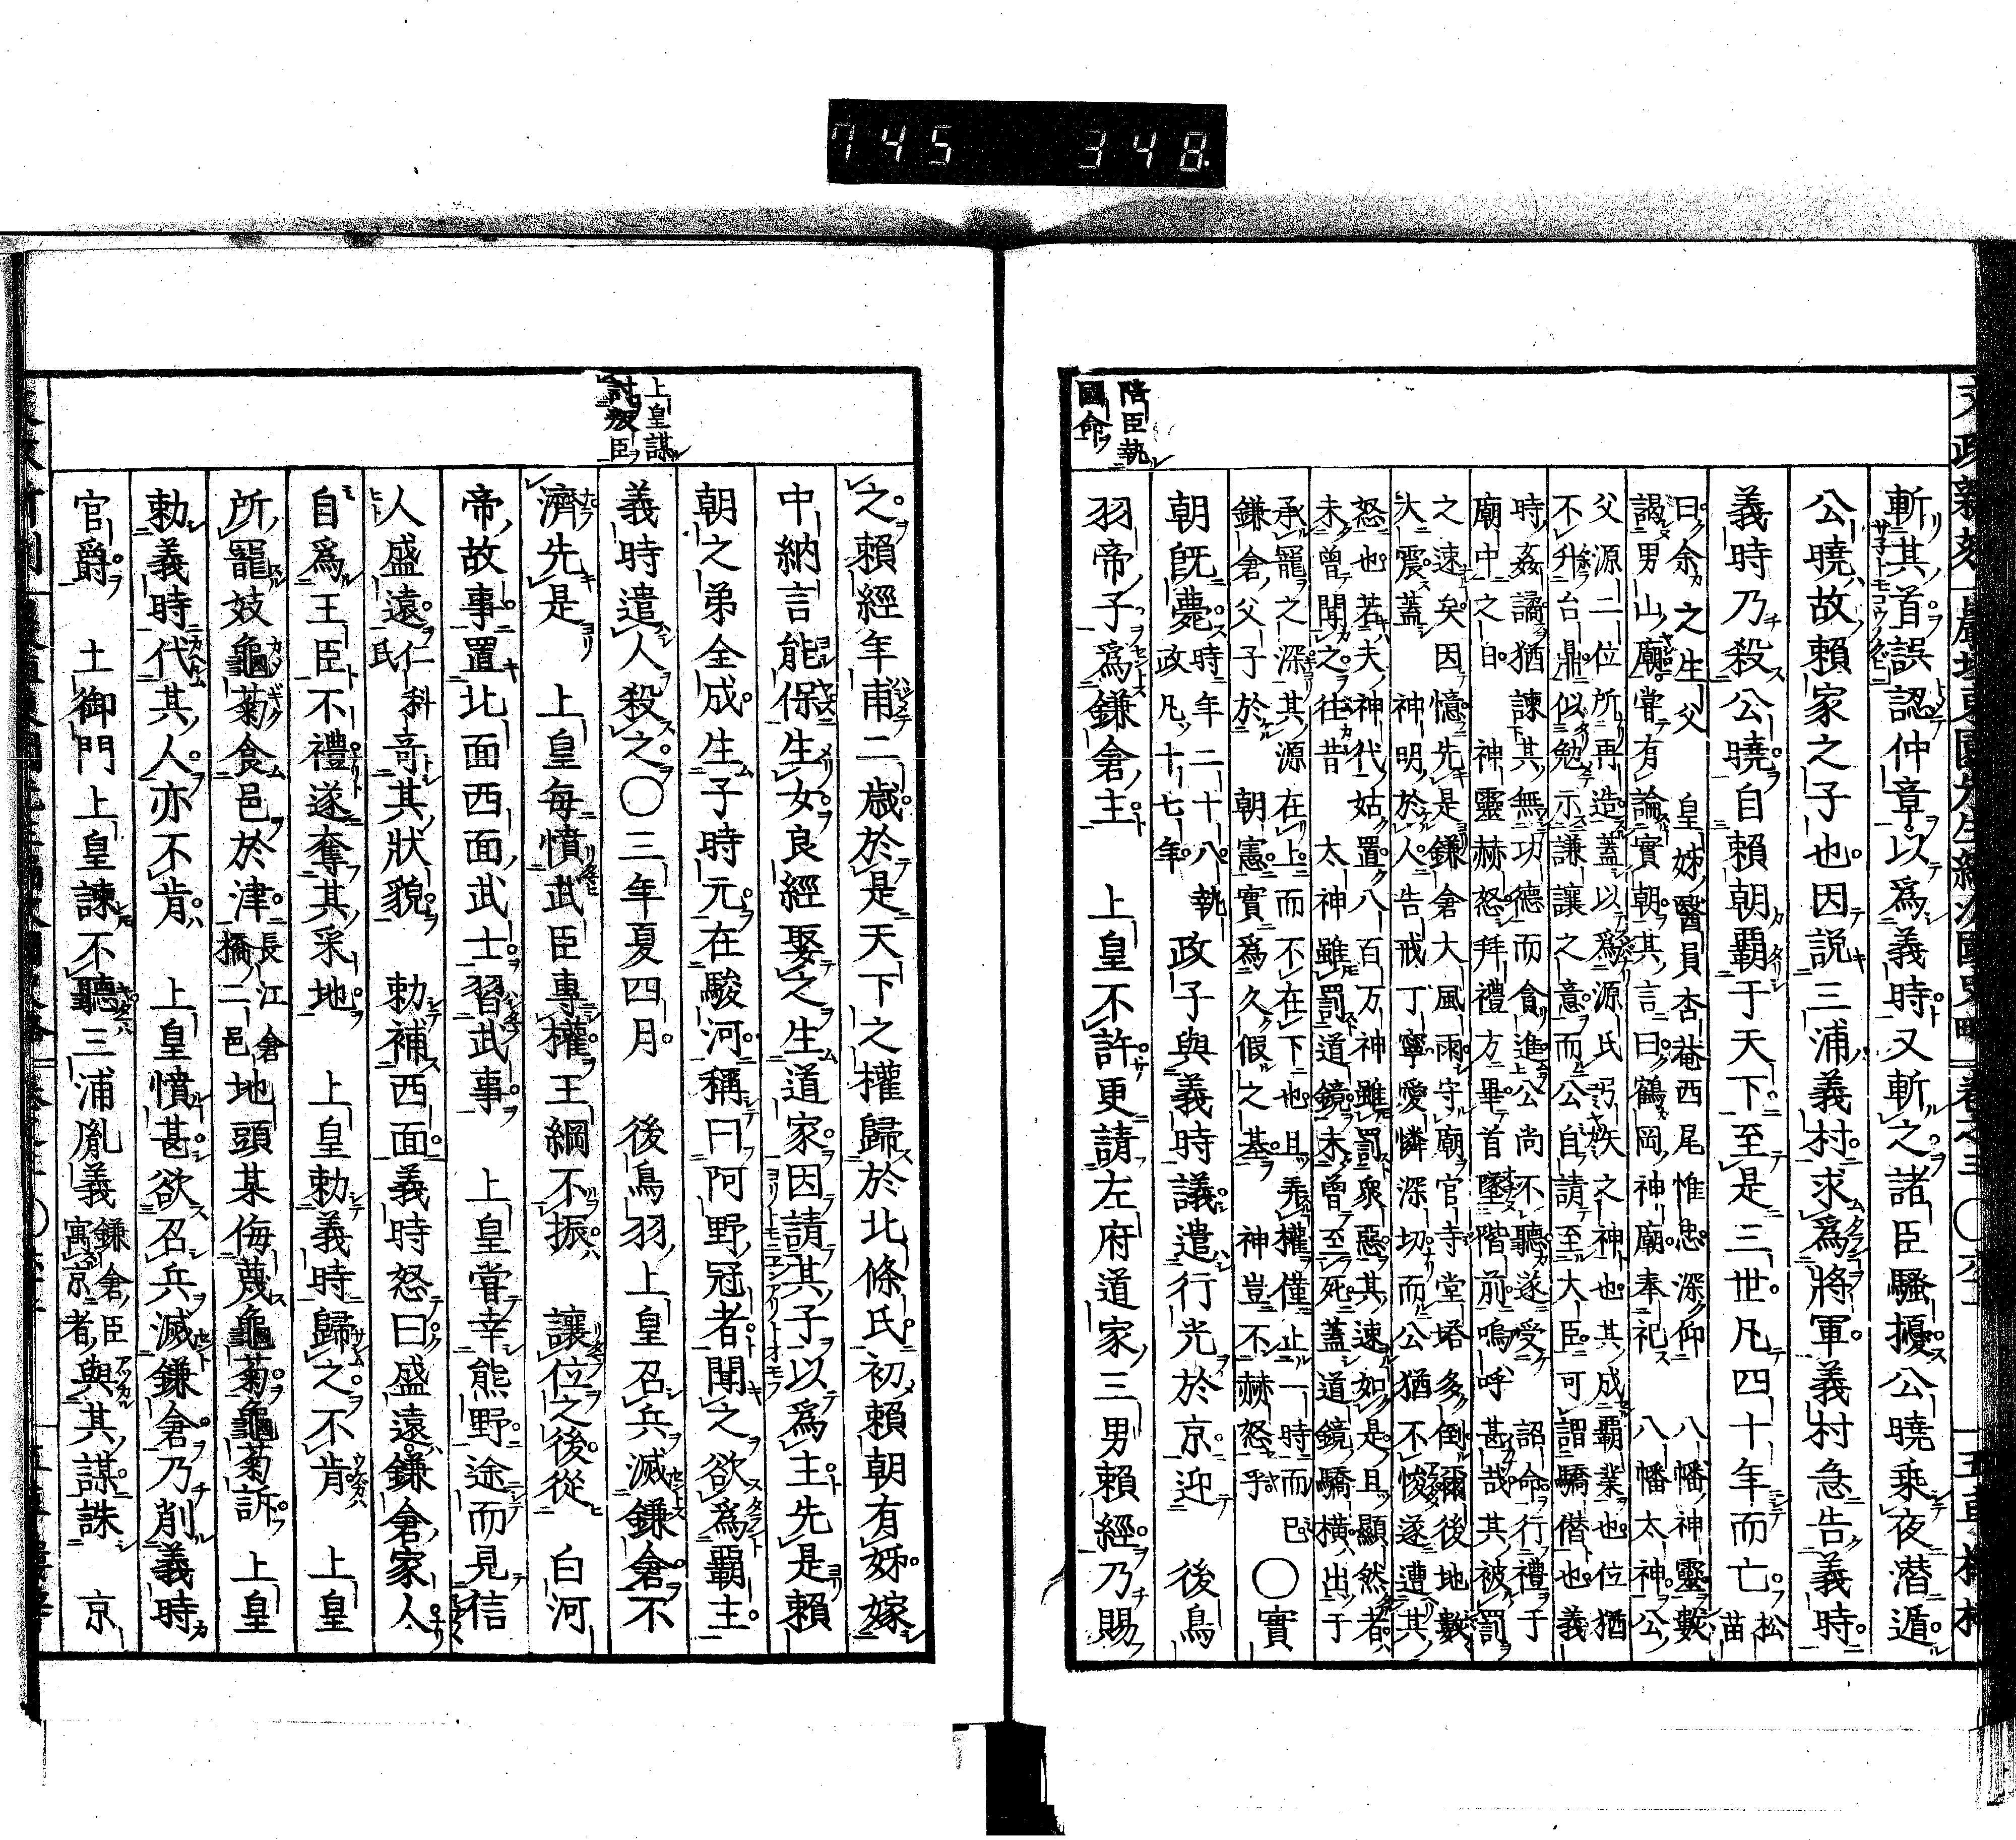 745 348.
斬其首誤認仲章以爲義時又斬之諸臣騷擾公曉乘夜潜遁
公曉故賴家之子也因説三浦義村求爲將軍義村急告義時
義時乃殺公曉自賴朝覇于天下至是三世凡四十年而亡
松苗
曰余之生父 皇姊醫員杏菴西尾惟忠深仰 八幡神靈數
謁男山廟嘗有論實朝其言曰鶴岡神廟奉祀 八幡太神公
父源二位所再造蓋以爲源氏弓矢之神也其成覇業也位猶
不升台鼎似勉示謙讓之意而公自請至大臣可謂驕僭也義
時姦譎猶諫其無功德而貪進公尚不聽遂受 詔命行禮于
廟中之日 神靈赫怒拜禮方畢首墜階前嗚呼甚哉其被罰
之速矣因憶先是鎌倉大風雨守廟官寺堂塔多倒爾後地數
大震蓋 神明於人告戒丁寧愛憐深切而公猶不悛遂遭其
怒也若夫神代姑置八百万神雖罰衆惡其速如是且顯然者
未曾聞之往昔 太神雖罰道鏡未曾至死蓋道鏡驕横出于
承寵之深其源在上而不在下也且弄權僅止一時而已
鎌倉父子於 朝憲實爲久假之基 神豈不赫怒乎
〇實
陪臣執國命
朝旣薨時年二十八執政凡十七年政子與義時議遣行光於京迎 後鳥
羽帝子爲鎌倉主 上皇不許更請左府道家三男賴經乃賜
上皇謀討叛臣
之賴經年甫二歳於是天下之權歸於北條氏初賴朝有姊嫁
中納言能保生女良經娶之生道家因請其子以爲主先是賴
朝之弟全成生子時元在駿河稱曰阿野冠者聞之欲爲覇主
義時遣人殺之〇三年夏四月 後鳥羽上皇召兵滅鎌倉不
濟先是 上皇毎憤武臣專權王綱不振 讓位之後從 白河
帝故事置北面西面武士習武事 上皇嘗幸熊野途而見信
人盛遠仁科氏奇其狀貌 勅補西面義時怒曰盛遠鎌倉家人
自爲王臣不禮遂奪其采地 上皇勅義時歸之不肯 上皇
所寵妓龜菊食邑於津長江倉橋二邑地頭某侮蔑龜菊龜菊訴 上皇
勅義時代其人亦不肯 上皇憤甚欲召兵滅鎌倉乃削義時
官爵 土御門上皇諫不聽三浦胤義鎌倉臣寓京者與其謀誅 京